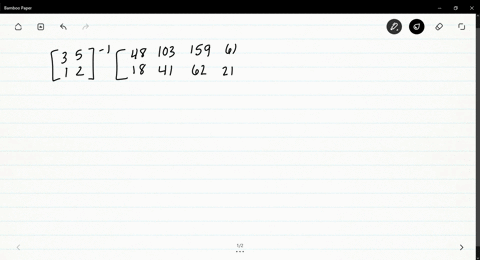 Bamboo Paper
[3 5]⁻¹ [48 103 159 61
[1 2] [18 41 62 21
1/2